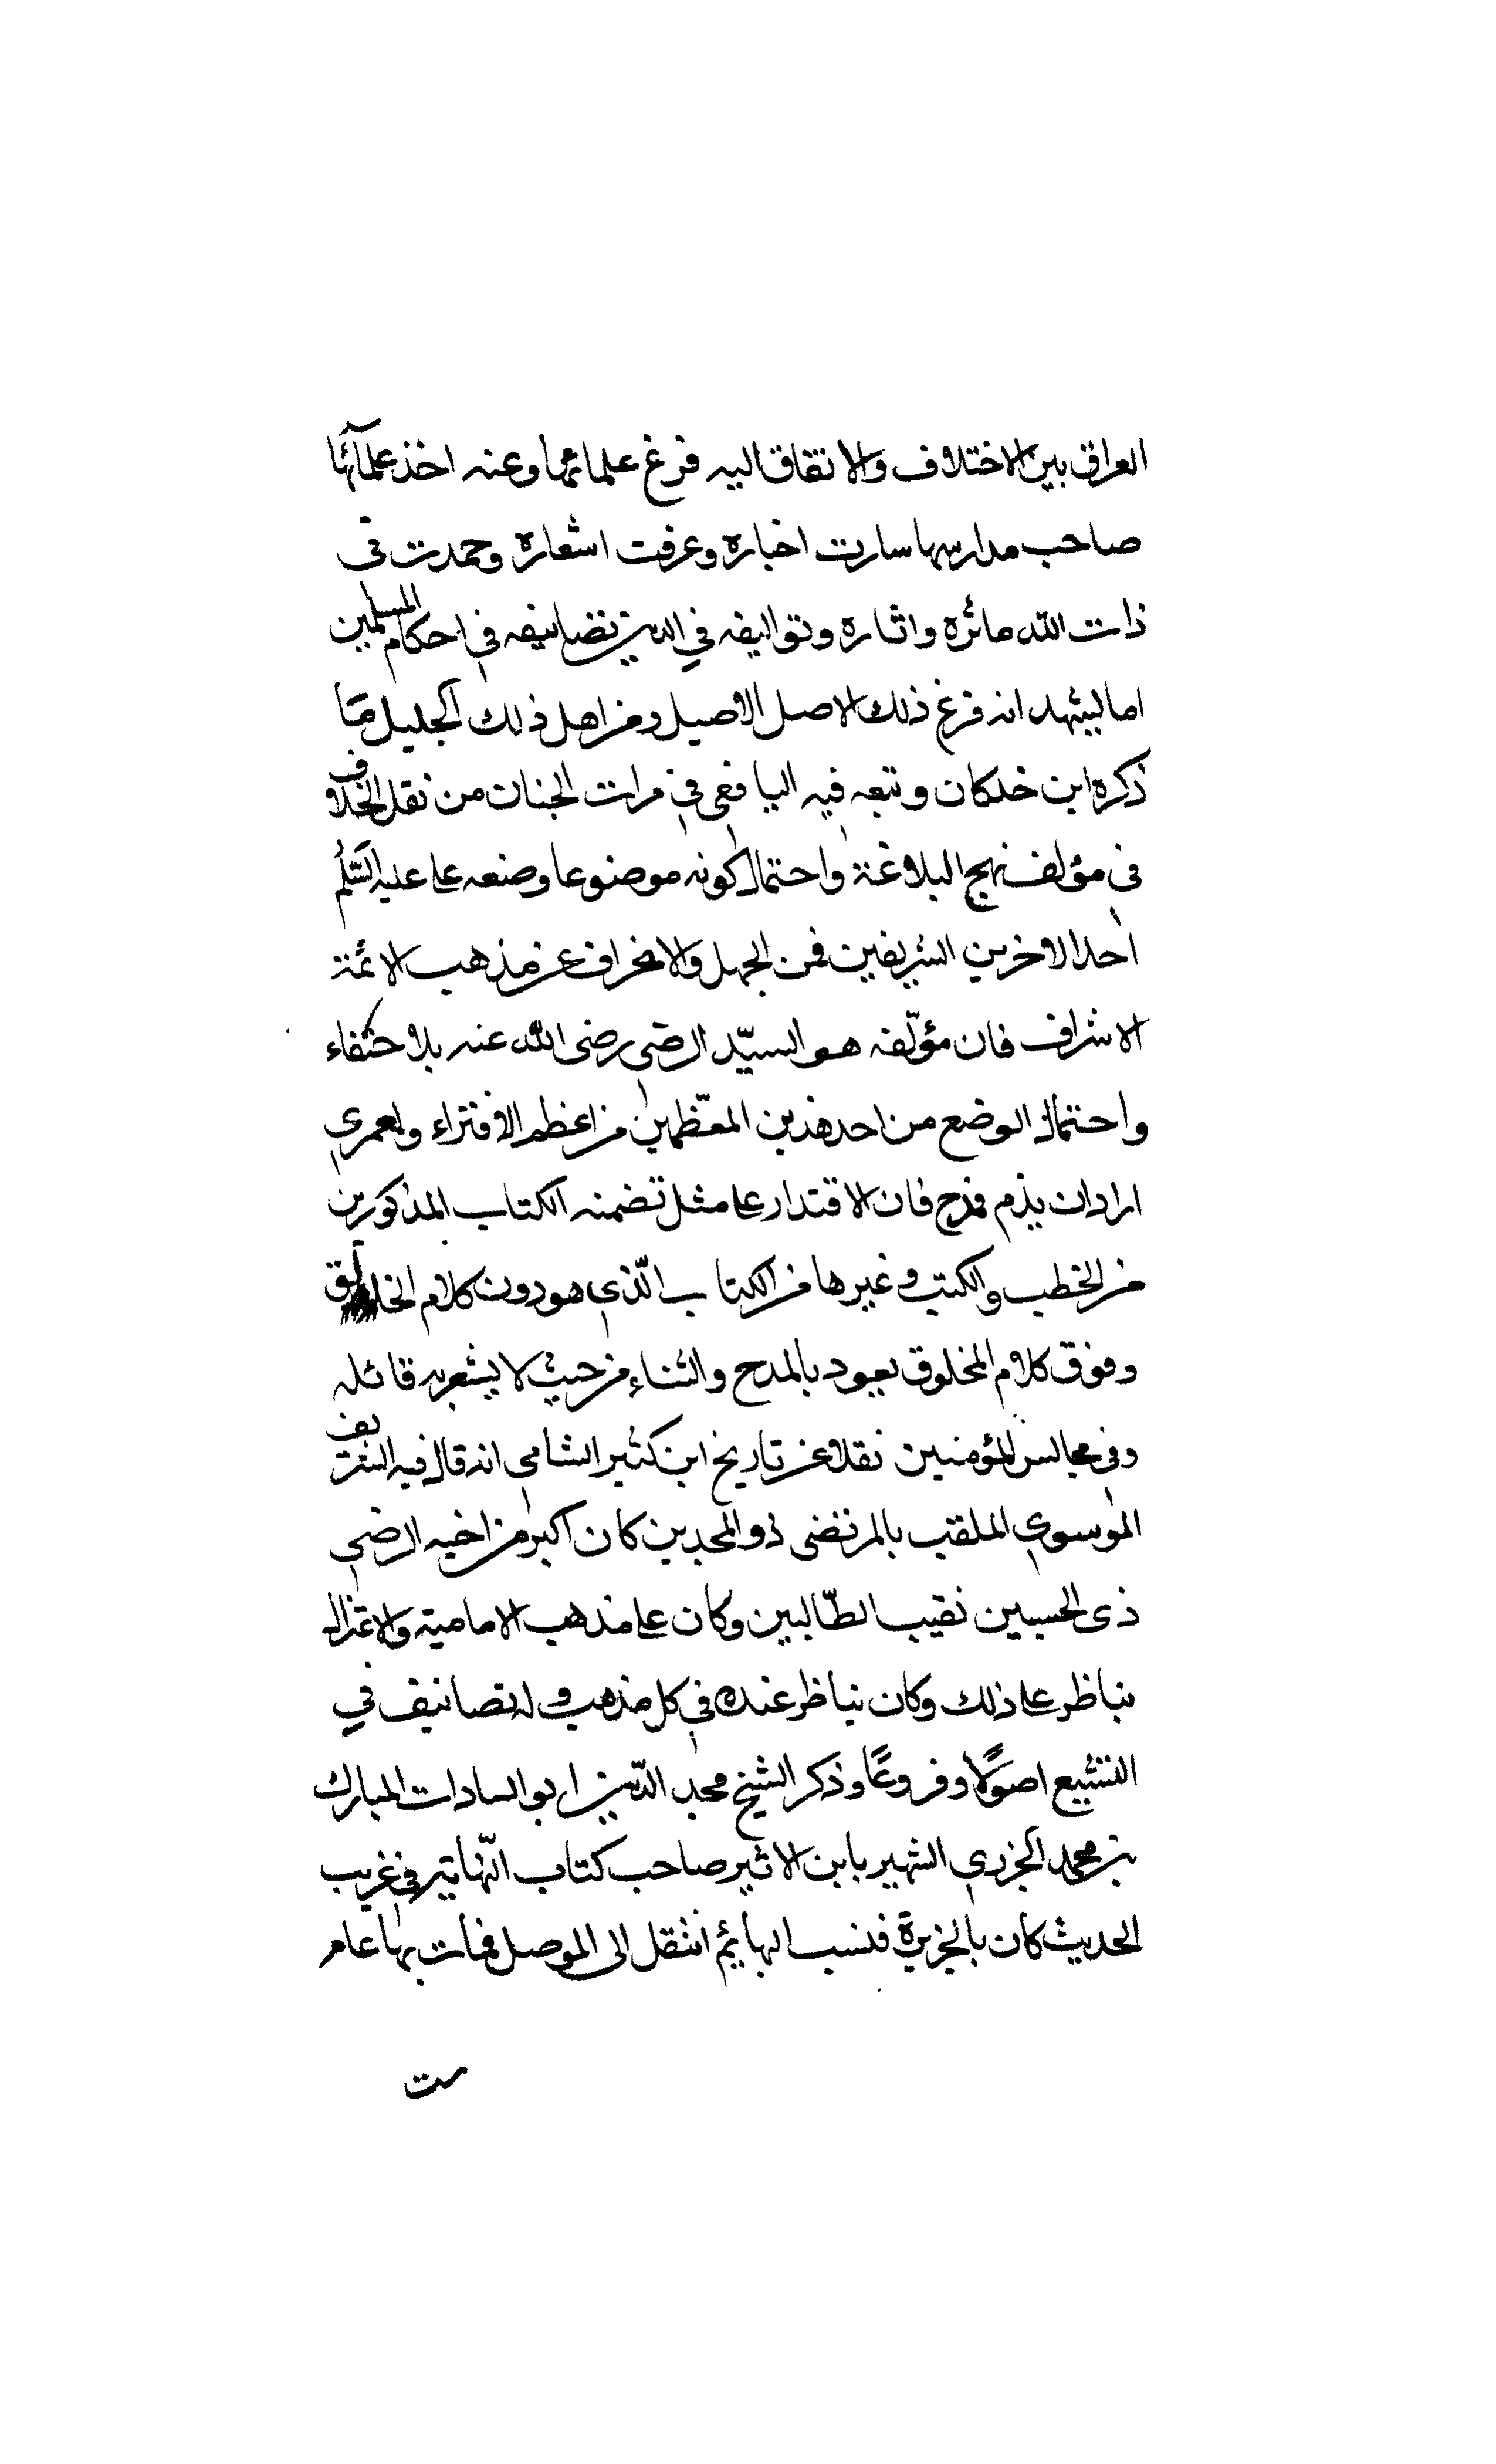 العراق بين الاختلاف والاتفاق اليه فزغ علمائها وعنه اخذ علمآئها
صاحب مدارسها سارت اخباره وعرفت اشعاره وحمدت فى
ذات الله مائره واثاره وتواليفه في الدين تضانيفه في احكام المسلمين
اما ليشهد انه فرغ ذلك الاصل الاصيل ومن اهل ذلك الجليل هَا
ذكره ابن خلكان وتبعه فيه اليافعى فى مرات الجنان من نقل الخلاف
فى مؤلف نهج البلاغة واحتمال كونه موضوعا وضعه على عليه السّلم
احدا لاخرين الشريفين فمن الجهل والانحراف عن مذهب الائمة
الاشراف فان مؤلّفه هو السيّد الرضى رضى الله عنه بلا ختفاء
واحتمال الوضع من احد هذين المعظّمين من اعظم الافتراء ولعمرى
اراد ان يذم فمدح فان الاقتدار على مثل تضمنه الكتاب المذكورين
من الخطب والكتب وغيرها من الكتاب الّذى هو دون كلام الخالق
وفوق كلام المخلوق يعود بالمدح والثناء من حيث لا يشعر به قائله
وفى مجالس المؤمنين نقلا عن تاريخ ابن كثير الشامى انه قال فيه الشريف
الموسوى الملقب بالمرتضى ذو المجدين كان اكبر من اخيه الرضى
ذى الحسبين نقيب الطّالبين وكان على مذهب الامامية والاعتزال
يناظر على ذلك وكان يناظر عنده فى كل مذهب وله تصانيف في
التشيع اصوَلًا وفروعًا وذكر الشيخ مجد الدّين ابو السادات المبارك
بن محمد الجزرى الشهير بابن الاثير صاحب كتاب النّهاية فى غريب
الحديث كان بالجزيرة فنسب اليها ثم انتقل الى الموصل فمات بها عام
ست